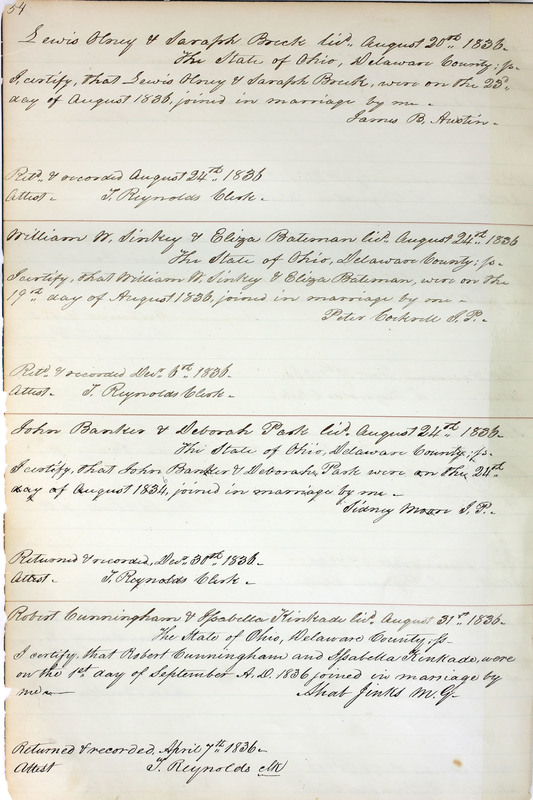 54
Lewis Olney & Saraph Breck lisd. August 20th 1836.
The State of Ohio, Delaware County; ss.
I certify, that Lewis Olney & Saraph Breck, were on the 23d
day of August 1836, joined in marriage by me.
James B. Austin.
Retd. & recorded August 24th 1836
Attest. T. Reynolds Clerk.
William W. Sinkey & Eliza Bateman lisd. August 24th 1836
The State of Ohio, Delaware County; ss.
I certify, that William W. Sinkey & Eliza Bateman, were on the
19th day of August 1836, joined in marriage by me.
Peter Cockrell J. P.
Retd. & recorded Decr. 6th 1836.
Attest. T. Reynolds Clerk.
John Banker & Deborah Park lisd. August 24th 1836.
The State of Ohio, Delaware County; ss.
I certify, that John Banker & Deborah Park were on the 24th
day of August 1836, joined in marriage by me.
Sidney Moore J. P.
Returned & recorded, Decr. 30th 1836.
Attest. T. Reynolds Clerk.
Robert Cunningham & Issabella Kinkade lisd. August 31st 1836.
The State of Ohio, Delaware County; ss.
I certify, that Robert Cunningham and Issabella Kinkade, were
on the 1st day of September A. D. 1836 joined in marriage by
me. Ahab Jinks M. G.
Returned & recorded, April 7th 1836.
Attest T. Reynolds clk